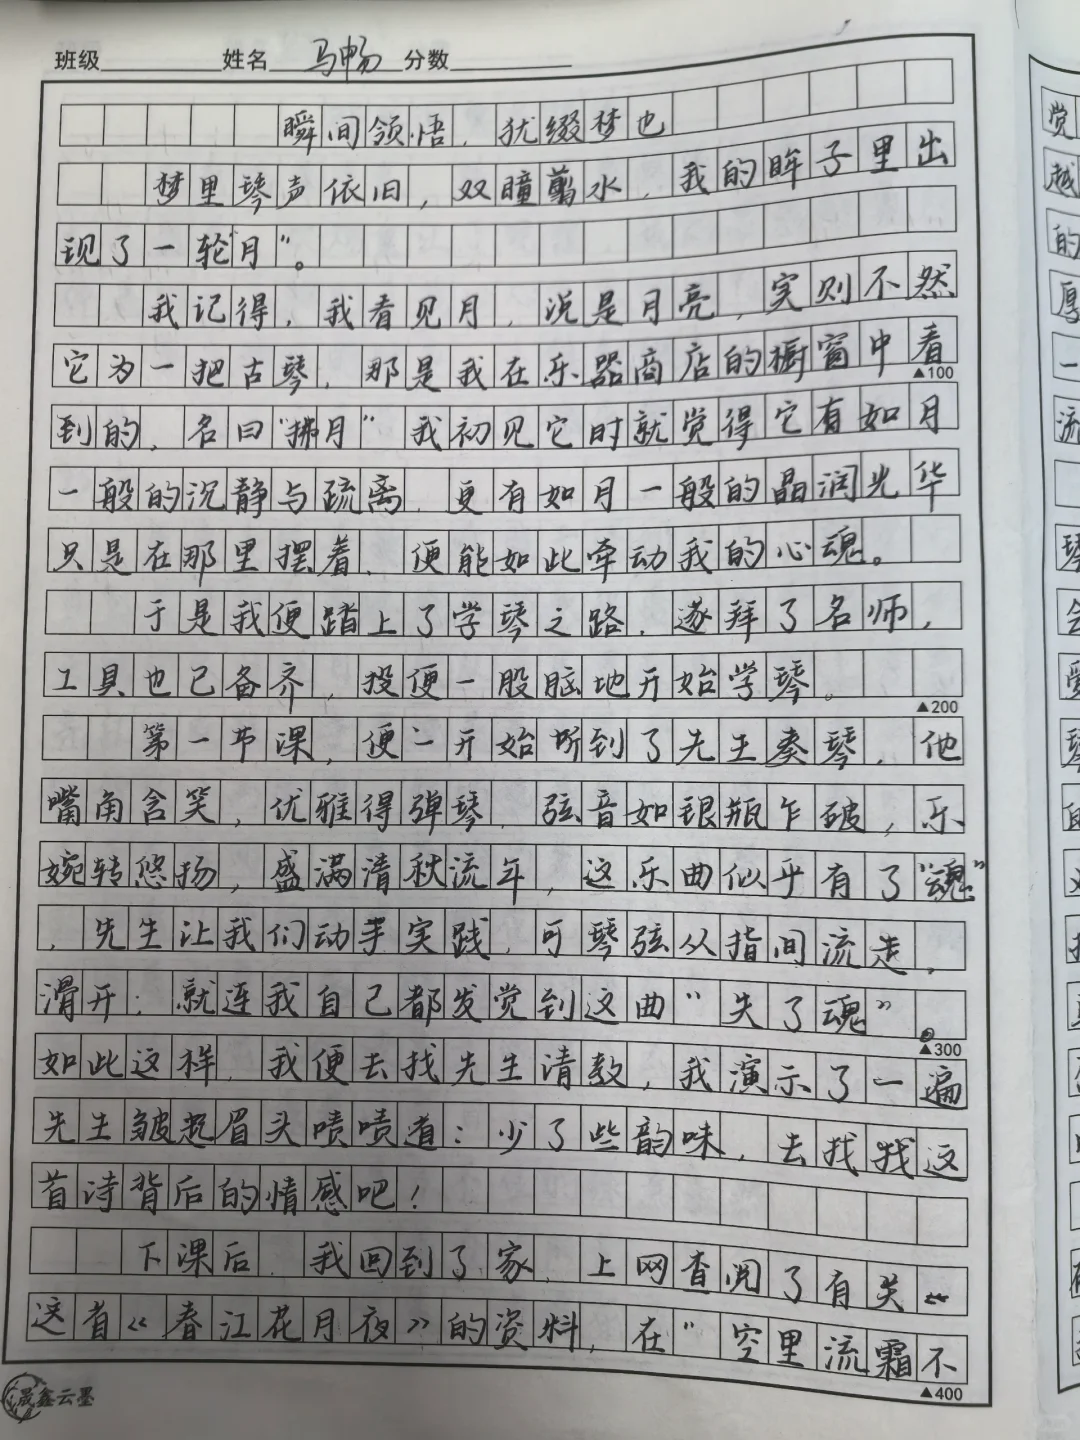 班级 姓名 马畅 分数
瞬间领悟，犹缀梦也
梦里琴声依旧，双瞳剪水，我的眸子里出
现了一轮“月”。
我记得，我看见月，说是月亮，实则不然
它为一把古琴，那是我在乐器商店的橱窗中看
▲100
到的，名曰“拂月”我初见它时就觉得它有如月
一般的沉静与疏离，更有如月一般的晶润光华
只是在那里摆着，便能如此牵动我的心魂。
于是我便踏上了学琴之路，遂拜了名师，
工具也已备齐，投便一股脑地开始学琴。
▲200
第一节课，便一开始听到了先生奏琴，他
嘴角含笑，优雅得弹琴，弦音如银瓶乍破，乐
婉转悠扬，盛满清秋流年，这乐曲似乎有了“魂”
，先生让我们动手实践，可琴弦从指间流走，
滑开；就连我自己都发觉到这曲“失了魂”。
▲300
如此这样，我便去找先生请教，我演示了一遍
先生皱起眉头啧啧道：少了些韵味，去找找这
首诗背后的情感吧！
下课后，我回到了家，上网查阅了有关
这首《春江花月夜》的资料，在“空里流霜不
▲400
晟鑫云墨
觉
越
的
厚
一
流
琴
会